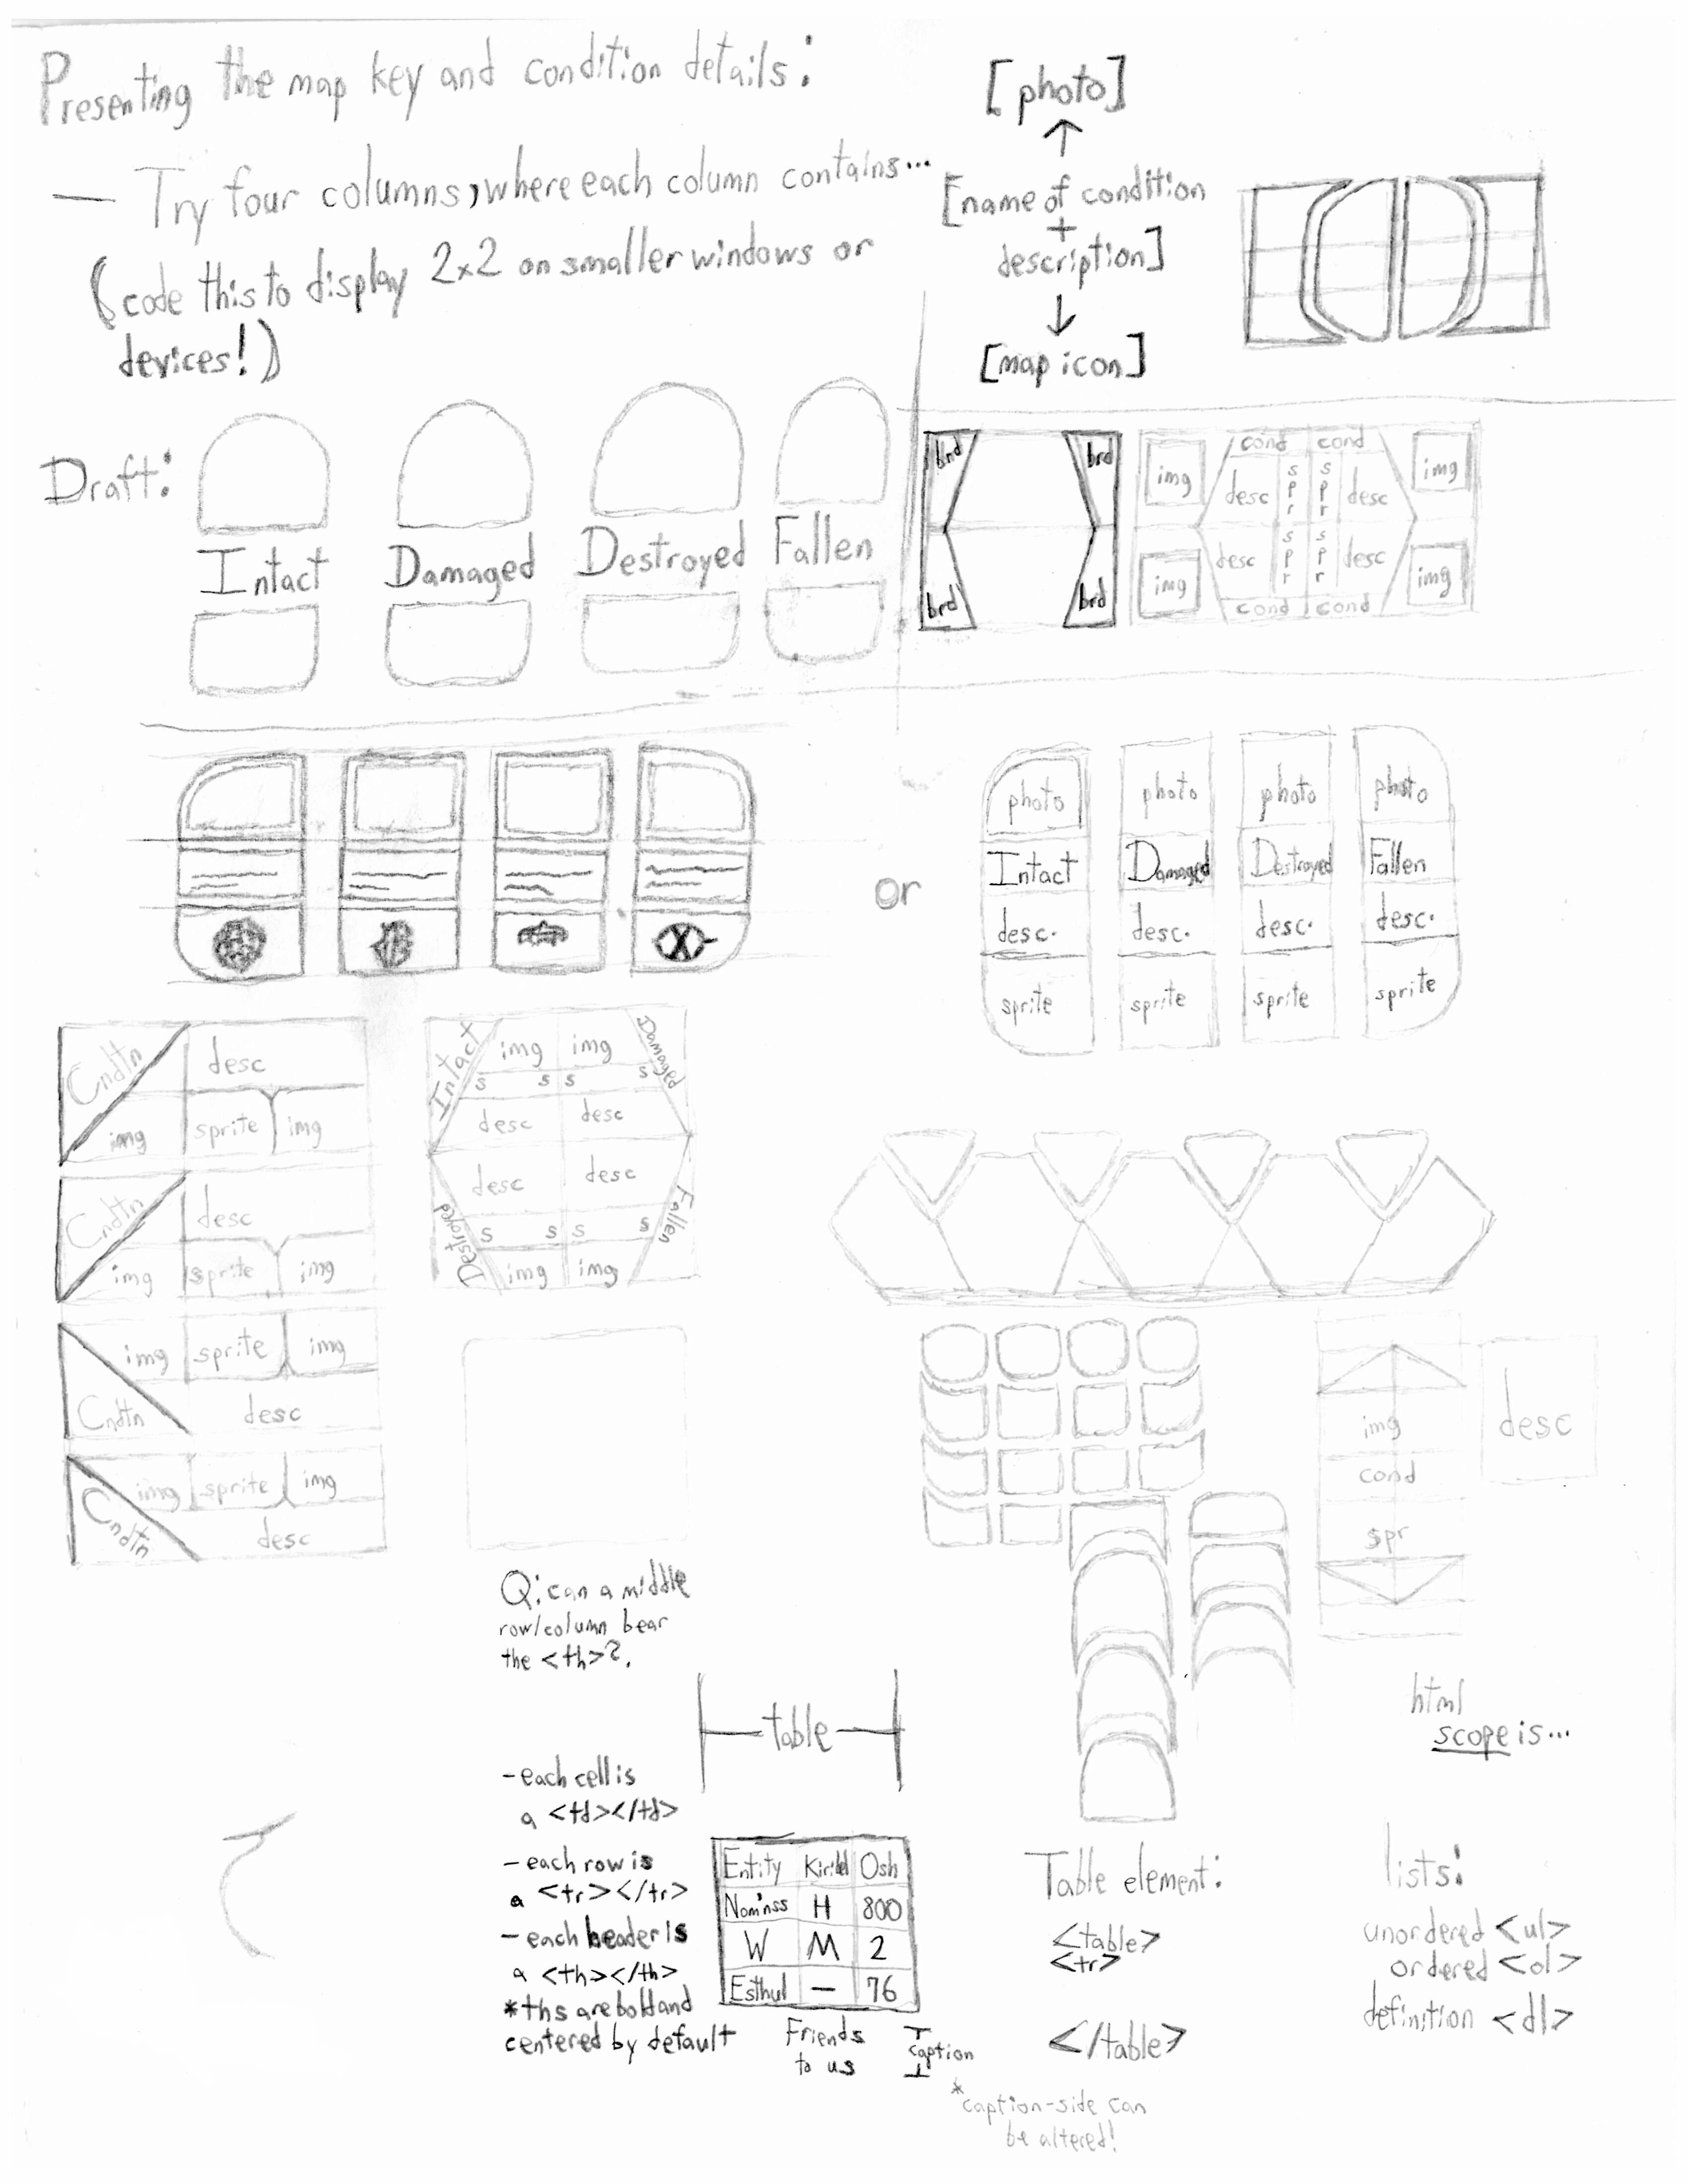 Presenting the map key and condition details:
— Try four columns, where each column contains...
(code this to display 2x2 on smaller windows or
devices!)
[photo]
↑
[name of condition
+
description]
↓
[map icon]
Draft:
Intact
Damaged
Destroyed
Fallen
brd
brd
brd
brd
img
cond
cond
img
desc
spr
spr
desc
img
desc
spr
spr
desc
img
cond
cond
or
photo
photo
photo
photo
Intact
Damaged
Destroyed
Fallen
desc.
desc.
desc.
desc.
sprite
sprite
sprite
sprite
Cndtn
desc
img
sprite
img
Cndtn
desc
img
sprite
img
img
sprite
img
Cndtn
desc
img
sprite
img
Cndtn
desc
Intact
img
img
Damaged
s
s
s
s
desc
desc
desc
desc
Destroyed
s
s
s
s
Fallen
img
img
img
cond
spr
desc
Q: can a middle
row/column bear
the <th>?.
table
html
scope is...
- each cell is
a <td></td>
- each row is
a <tr></tr>
- each header is
a <th></th>
*ths are bold and
centered by default
Entity
Osh
Nom'nss
H
800
W
M
2
Esthul
—
76
Friends
to us
caption
*caption-side can
be altered!
Table element:
<table>
<tr>
</table>
lists:
unordered <ul>
ordered <ol>
definition <dl>